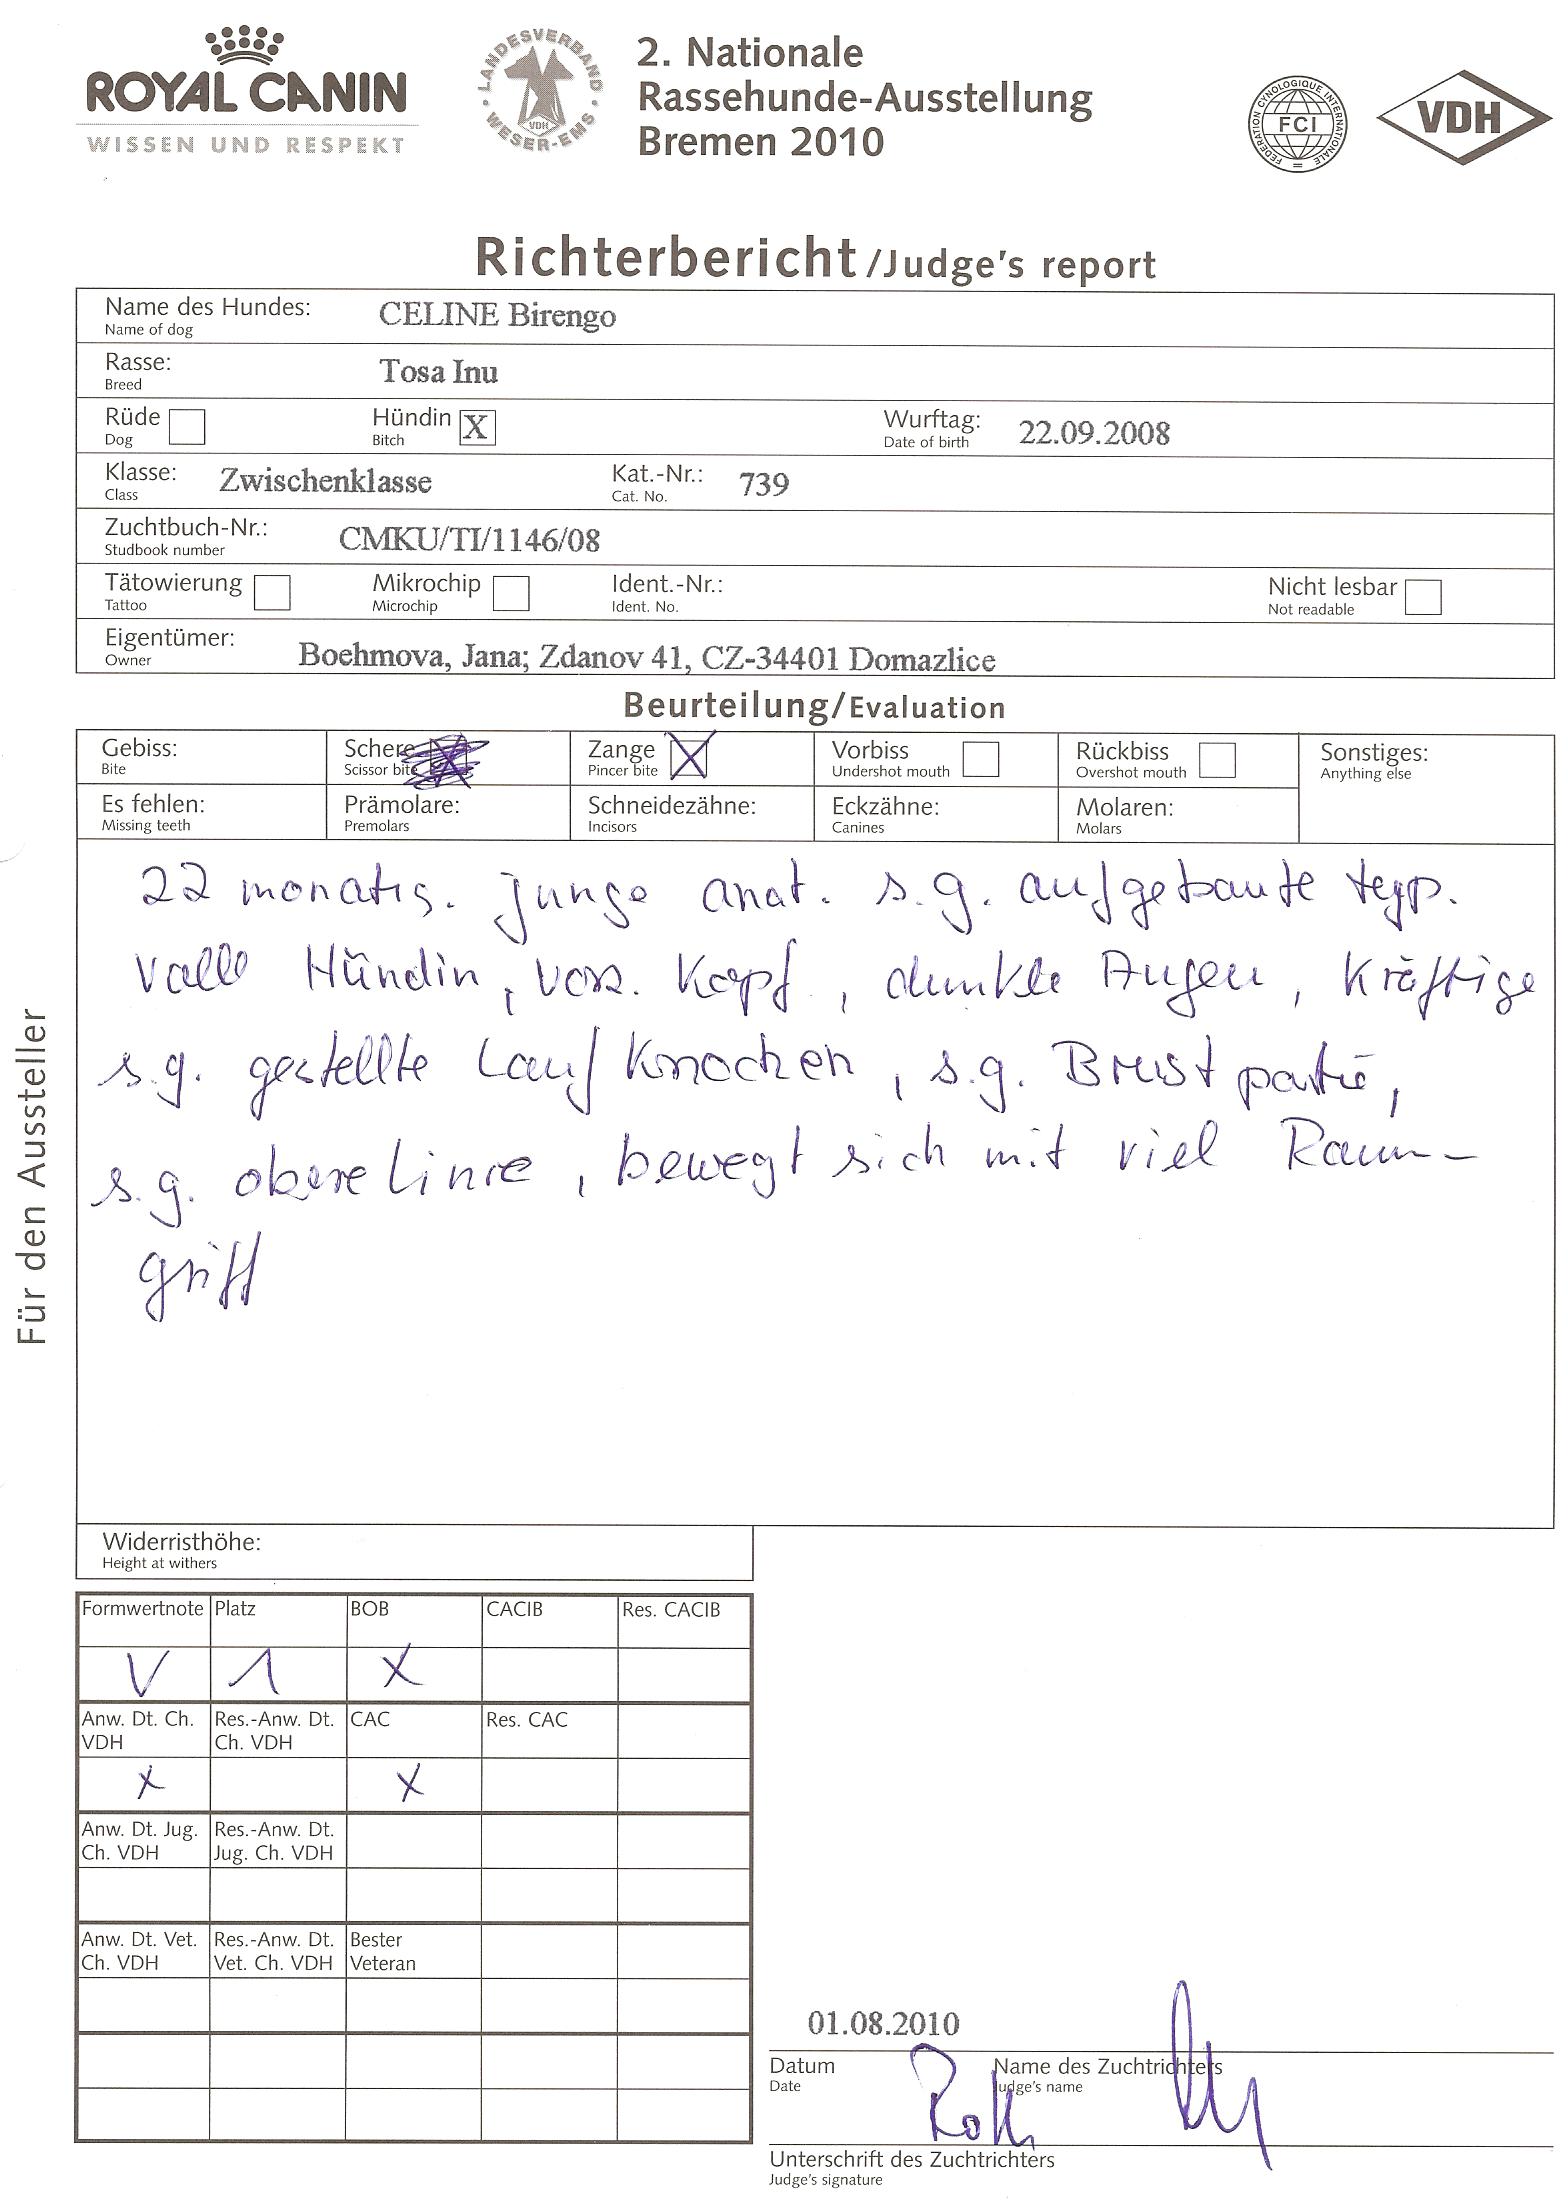 ROYAL CANIN
WISSEN UND RESPEKT
LANDESVERBAND
WESER-EMS
VDH
2. Nationale
Rassehunde-Ausstellung
Bremen 2010
FEDERATION CYNOLOGIQUE INTERNATIONALE
FCI
VDH
Richterbericht /Judge's report
Name des Hundes: CELINE Birengo
Name of dog
Rasse: Tosa Inu
Breed
Rüde Hündin X Wurftag: 22.09.2008
Dog Bitch Date of birth
Klasse: Zwischenklasse Kat.-Nr.: 739
Class Cat. No.
Zuchtbuch-Nr.: CMKU/TI/1146/08
Studbook number
Tätowierung Mikrochip Ident.-Nr.: Nicht lesbar
Tattoo Microchip Ident. No. Not readable
Eigentümer: Boehmova, Jana; Zdanov 41, CZ-34401 Domazlice
Owner
Beurteilung/Evaluation
Gebiss: Schere Zange X Vorbiss Rückbiss Sonstiges:
Bite Scissor bite Pincer bite Undershot mouth Overshot mouth Anything else
Es fehlen: Prämolare: Schneidezähne: Eckzähne: Molaren:
Missing teeth Premolars Incisors Canines Molars
22 monatig. junge anat. s.g. aufgebaute typ.
volle Hündin, vorz. Kopf, dunkle Augen, kräftige
s.g. gestellte Lauf Knochen, s.g. Brustpartie,
s.g. obere Linie, bewegt sich mit viel Raum-
griff
Für den Aussteller
Widerristhöhe:
Height at withers
Formwertnote Platz BOB CACIB Res. CACIB
V 1 X
Anw. Dt. Ch. Res.-Anw. Dt. CAC Res. CAC
VDH Ch. VDH
X X
Anw. Dt. Jug. Res.-Anw. Dt.
Ch. VDH Jug. Ch. VDH
Anw. Dt. Vet. Res.-Anw. Dt. Bester
Ch. VDH Vet. Ch. VDH Veteran
01.08.2010
Datum Name des Zuchtrichters
Date Judge's name
Unterschrift des Zuchtrichters
Judge's signature